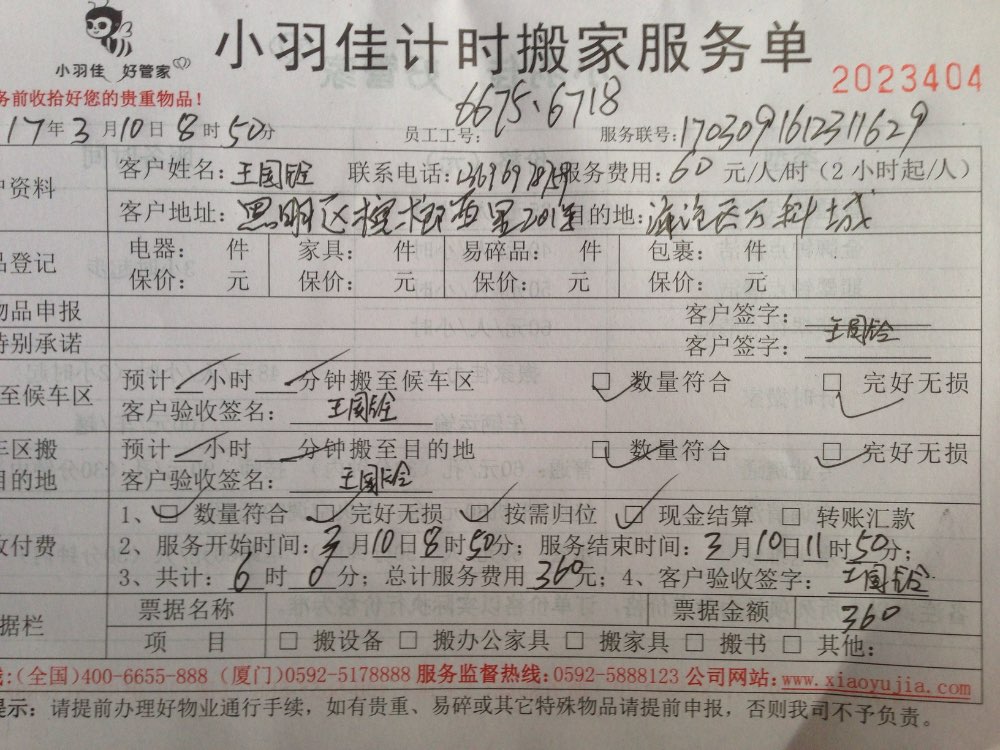 小羽佳 好管家
小羽佳计时搬家服务单
2023404
务前收拾好您的贵重物品!
17年3月10日8时50分 员工工号: 6675、6718 服务联号: 1703091612311629
户资料 客户姓名: 王国铨 联系电话: 服务费用: 60 元/人/时 (2小时起/人)
客户地址: 目的地: 万科城
品登记 电器: 件 家具: 件 易碎品: 件 包裹: 件
保价: 元 保价: 元 保价: 元 保价: 元
物品申报 客户签字: 王国铨
特别承诺 客户签字:
至候车区 预计 小时 分钟搬至候车区 □ 数量符合 □ 完好无损
客户验收签名: 王国铨
车区搬 预计 小时 分钟搬至目的地 □ 数量符合 □ 完好无损
目的地 客户验收签名: 王国铨
1、□ 数量符合 □ 完好无损 □ 按需归位 □ 现金结算 □ 转账汇款
收付费 2、服务开始时间: 3月10日8时50分; 服务结束时间: 3月10日11时50分;
3、共计: 6时0分; 总计服务费用360元; 4、客户验收签字: 王国铨
据栏 票据名称 票据金额 360
项 目 □ 搬设备 □ 搬办公家具 □ 搬家具 □ 搬书 □ 其他:
线:(全国)400-6655-888 (厦门)0592-5178888 服务监督热线:0592-5888123 公司网站:www.xiaoyujia.com
提示: 请提前办理好物业通行手续,如有贵重、易碎或其它特殊物品请提前申报,否则我司不予负责。